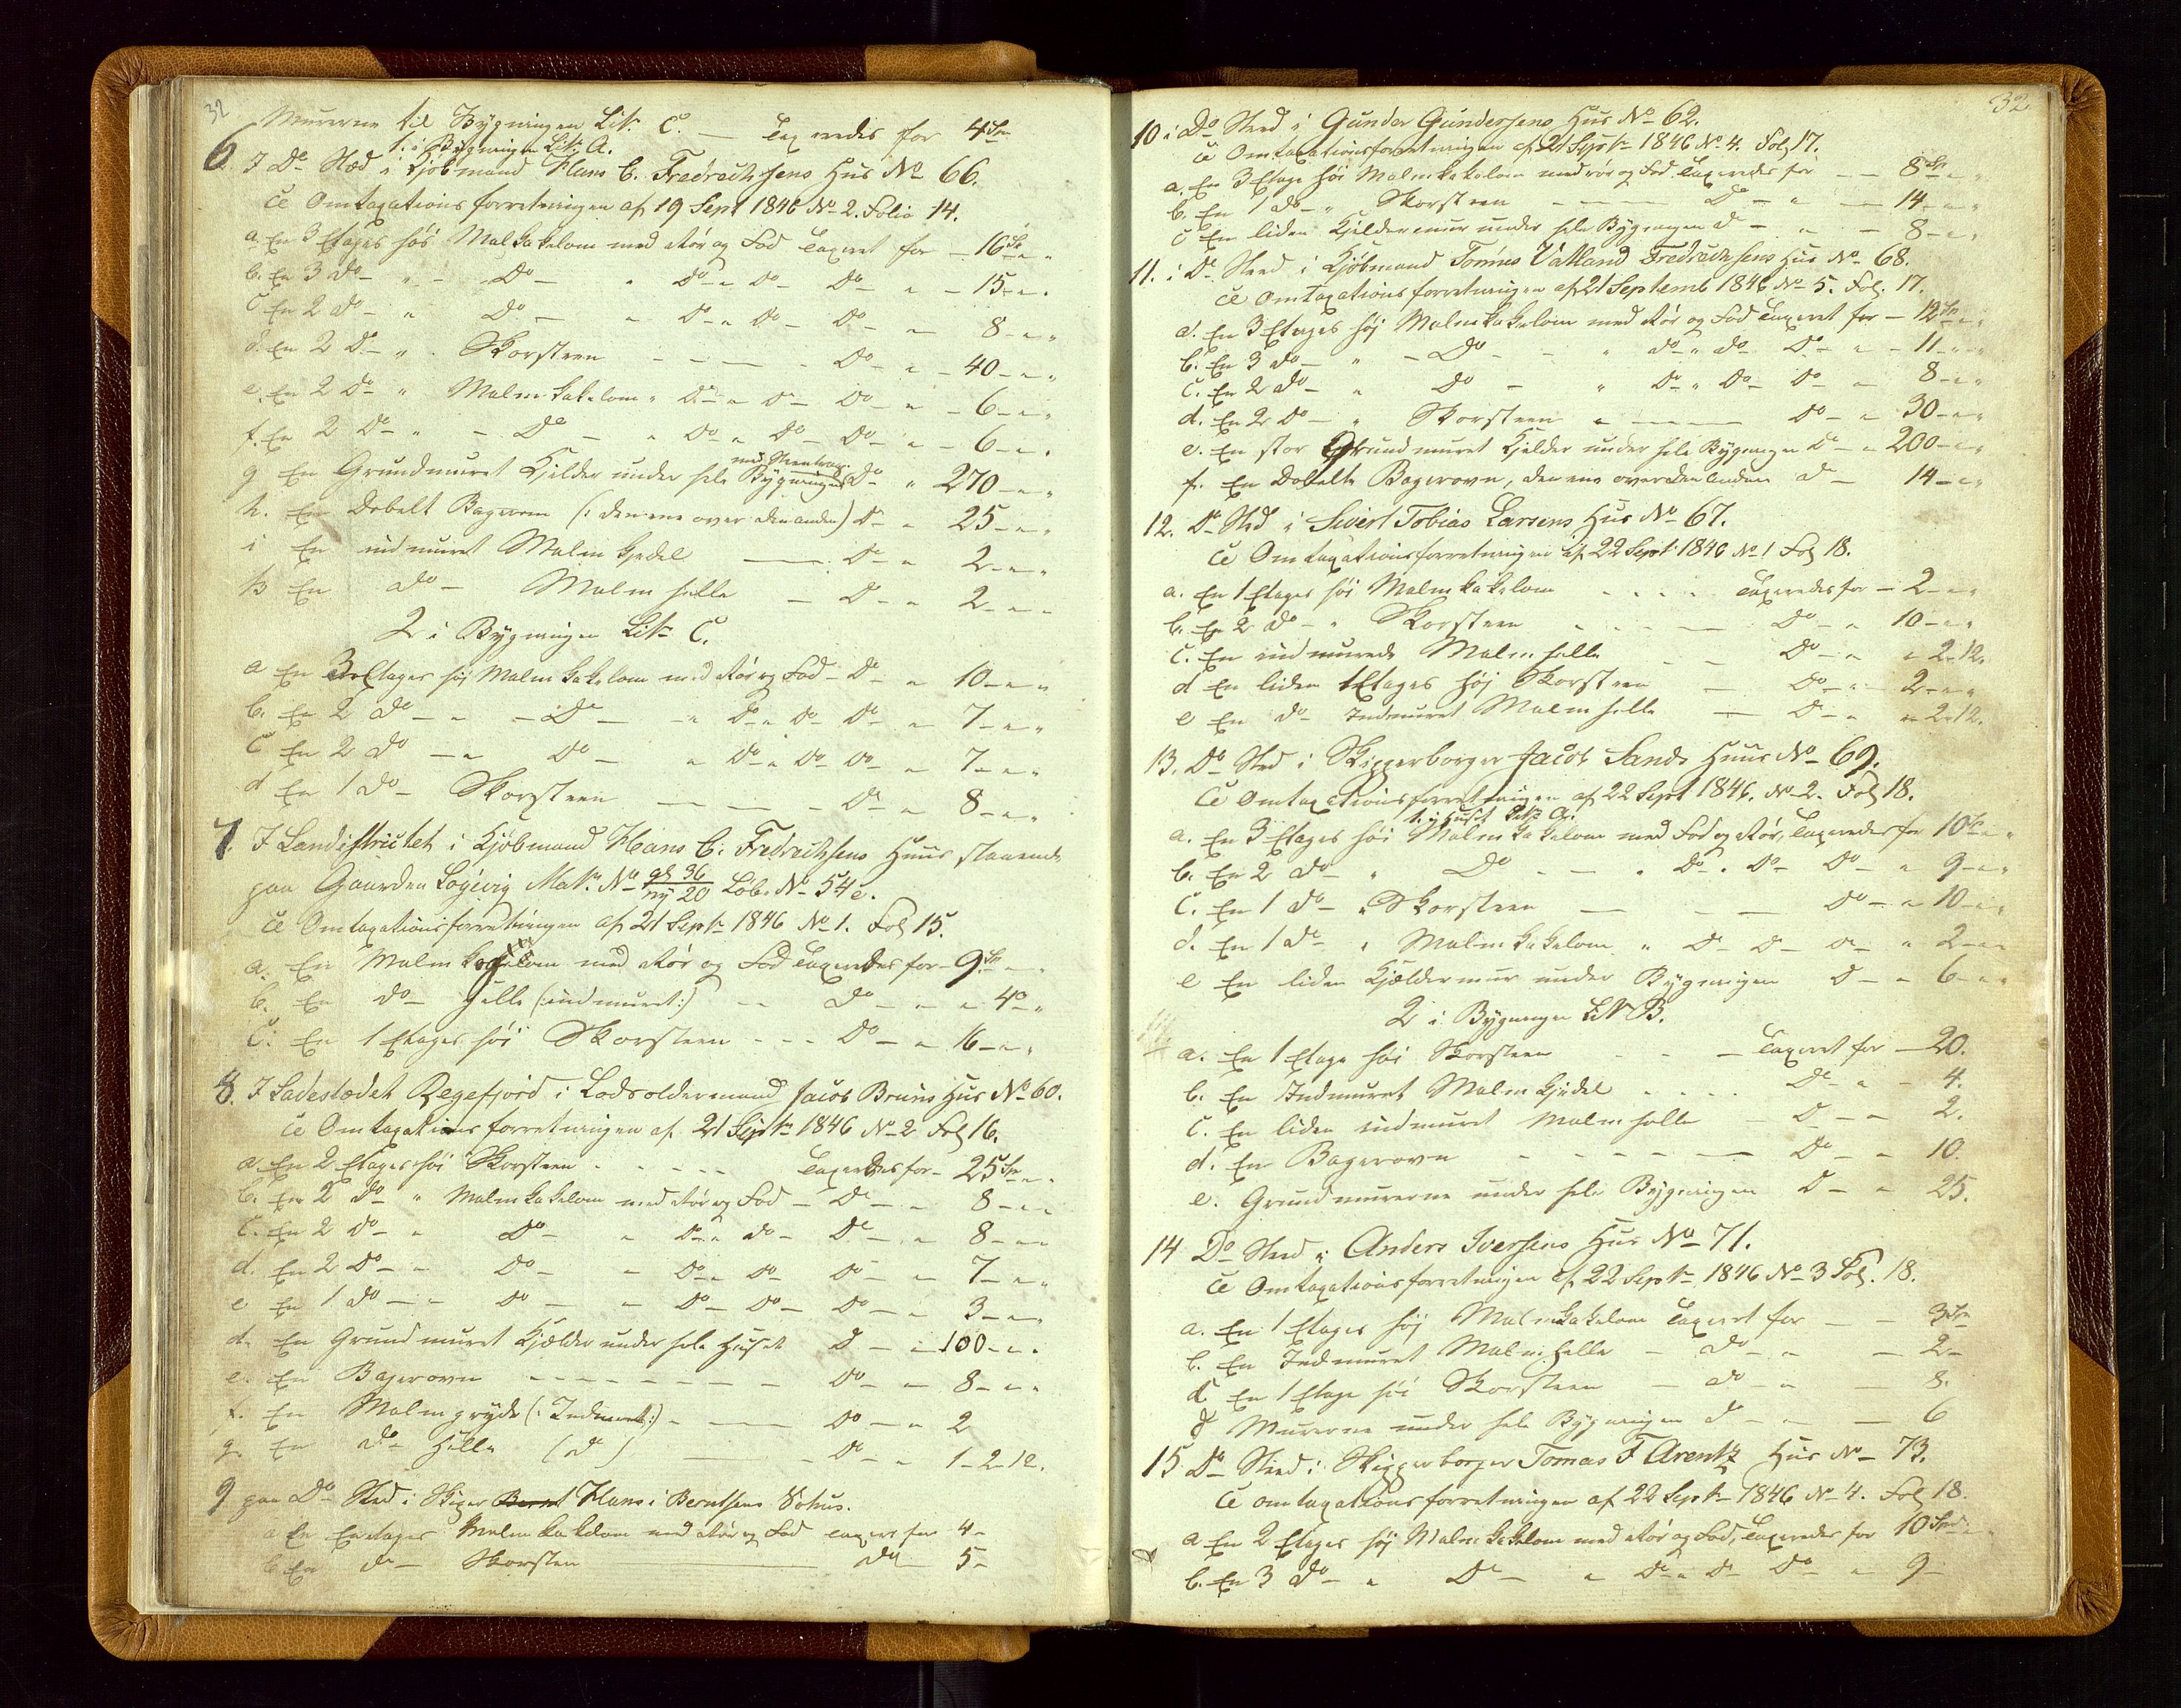 32
Murerne til Bygningen Litr C. — Taxeredes for 4 Spr
1. i Bygningen Litr A.
6. I Do Sted i Kjøbmand Hans C. Fredrichsens Hus No 66.
cfr Omtaxationsforretningen af 19 Sept 1846 No 2. Folio 14.
a. En 3 Etages høi Malmkakelovn med Rør og Fod Taxeret for — 16 Sp " "
b. En 3 Do — " — Do " Do " Do — Do — " — 15 — " "
c En 2 Do — " Do — " Do — " Do — Do — " 8 — " "
d. En 2 Do — " Skorsteen — — — Do — " — 40 — " "
e. En 2 Do — " Malmkakelovn " Do — " Do — Do — " — 6 — " "
f. En 2 Do — " — Do — " Do " Do — Do — " — 6 — " "
g En Grundmuret Kjelder under hele Bygningen Do — " 270 — " "
h. En Dobelt Bagerovn (: den ene over den anden) Do — " 25 — " "
i En indmuret Malmkjedel — Do — " 2 — " "
k En Do — Malmhelle — Do — " 2 — " "
2 i Bygningen Litr C.
a En 3 Etages høi Malmkakelovn med Rør og Fod — Do — " 10 — " "
b. En 2 Do — " — Do — " Do " Do — Do — " 7 — " "
c En 2 Do — " Do — " Do — " Do — Do — " 7 — " "
d En 1 Do — Skorsteen — — — Do — " 8 — " "
7. I Landistrictet i Kjøbmand Hans C. Fredrichsens Huus staaende
paa Gaarden Sogevig Matr. No gl 36 / ny 20 Løb. No 54 c.
cfr Omtaxationsforretningen af 21 Septr 1846 No 1. Fol 15.
a. En Malmkakelovn med Rør og Fod Taxeredes for — 9 Sp " "
b. En Do — Helle (: indmuret :) — Do — " " 4 " "
c. En 1 Etages høi Skorsteen - - - Do — " 16 — " "
8. I Ladestædet Regefjord i Lodsoldermand Jacob Bruuns Hus No 60.
cfr Omtaxationsforretningen af 21 Septr 1846 No 2 Fol 16.
a En 2 Etages høi Skorsteen - - - - - Taxeredes for — 25 Spr " "
b. En 2 Do — " Malmkakelovn med Rør og Fod — Do — " 8 — " "
c. En 2 Do — " Do — " Do " Do — Do — " 8 — " "
d. En 2 Do — " Do — " Do " Do — Do — " 7 — " "
e En 1 Do — " Do — " Do — Do — Do — " 3 — " "
d. En Grundmuret Kjælder under hele Huset Do — " 100 — " "
e. En Bagerovn - - - - - - - Do — " 8 — " "
f. En Malmgryde (: Indmuret :) — — Do — " 2
g. En Do — Helle (Do) — — Do — " 1 — 2 12.
9 paa Do Sted i Skiper Bernt Hans i Berntsens Vohus.
a En Enetages Malmkakelovn med Rør og Fod taxeres for 4 —
b En do — Skorsten — do — 5 —
32.
10 i Do Sted i Gunder Gundersens Hus No 62.
cfr Omtaxationsforretningen af 21 Septr 1846 No 4. Fol 17.
a. En 3 Etage høi Malmkakelovn med rør og Fod Taxeredes for — — 8 Spr " "
b. En 1 do — " Skorsteen — — — Do — " — 14 — " "
c En liden Kjeldermur under hele Bygningen D — " — 8 — " "
11. i Do Sted i Kjøbmand Tønnes Vatland Fredrichsens Hus No 68.
cfr Omtaxationsforretningen af 21 Septemb 1846 No 5. Fol. 17.
a. En 3 Etages høi Malmkakelovn med Rør og Fod Taxeret for — 12 Spr " "
b. En 3 do — " — Do — — " do " do Do — " — 11 — " "
c. En 2 do — " Do — " Do " Do — Do — " 8 — " "
d. En 2 Do — " Skorsteen " — — — Do — " 30 — " "
e. En stor Grundmuret Kjelder under hele Bygningen D — " 200 — " "
f. En Dobelte Bagerovn, den ene over den anden D — 14 — " "
12. Do Sted i Sivert Tobias Larsens Hus No 67.
cfr Omtaxationsforretningen af 22 Sept: 1846 No 1 Fol 18.
a. En 1 Etages høi Malmkakelovn - - - - Taxeredes for — 2 — " "
b. En 2 Do — " Skorsteen - - - — Do — " 10 — " "
c. En indmurede Malmhelle — — Do — " " 2 12.
d En liden 1 Etages høj Skorsteen — Do — " 2 — " "
e En do — Indmuret Malmhelle — D — " " 2 12.
13. Do Sted i Skipperborger Jacob Sands Huus No 69.
cfr Omtaxationsforretningen af 22 Sept 1846. No 2. Fol 18.
1. i Huset Litr A.
a. En 3 Etages høi Malmkakelovn med Fod og Rør, Taxeredes for 10 Sp " "
b. En 2 do — " Do — — " Do " Do — Do — " 9 — " "
c. En 1 do — " Skorsteen — — — Do — " 10 — " "
d. En 1 do — " Malmkakelovn " D — D — D — " 2 — " "
e En liden Kjældermur under Bygningen D — " 6 — " "
2 i Bygningen Litr B.
a. En 1 Etage høi Skorsteen - - — Taxeret for — 20.
b. En Indmuret Malmkjedel - - - - Do — " — 4.
c. En liden indmuret Malmhelle — D — " 2.
d. En Bagerovn - - - - - — Do — " 10.
e. Grundmurerne under hele Bygningen D — " 25.
14 Do Sted i Anders Iversens Hus No 71.
cfr Omtaxationsforretningen af 22 Septr 1846 No 3 Fol. 18.
a. En 1 Etages høj Malmkakelovn Taxeret for — — 3 Spr
b. En Indmuret Malmhelle — do — " — 2 —
c En 1 Etage høi Skorsteen — do — " — 8.
d Murerne under hele Bygningen D — " — 6
15 Do Sted i Skipperborger Tomas F Arentz Hus No 73.
cfr omtaxationsforretningen af 22 Septr 1846 No 4. Fol 18.
a En 2 Etages høj Malmkakelovn med Rør og Fod, Taxeredes for 10 Spd " "
b. En 3 do — " Do — " Do " D — Do — " 9 —